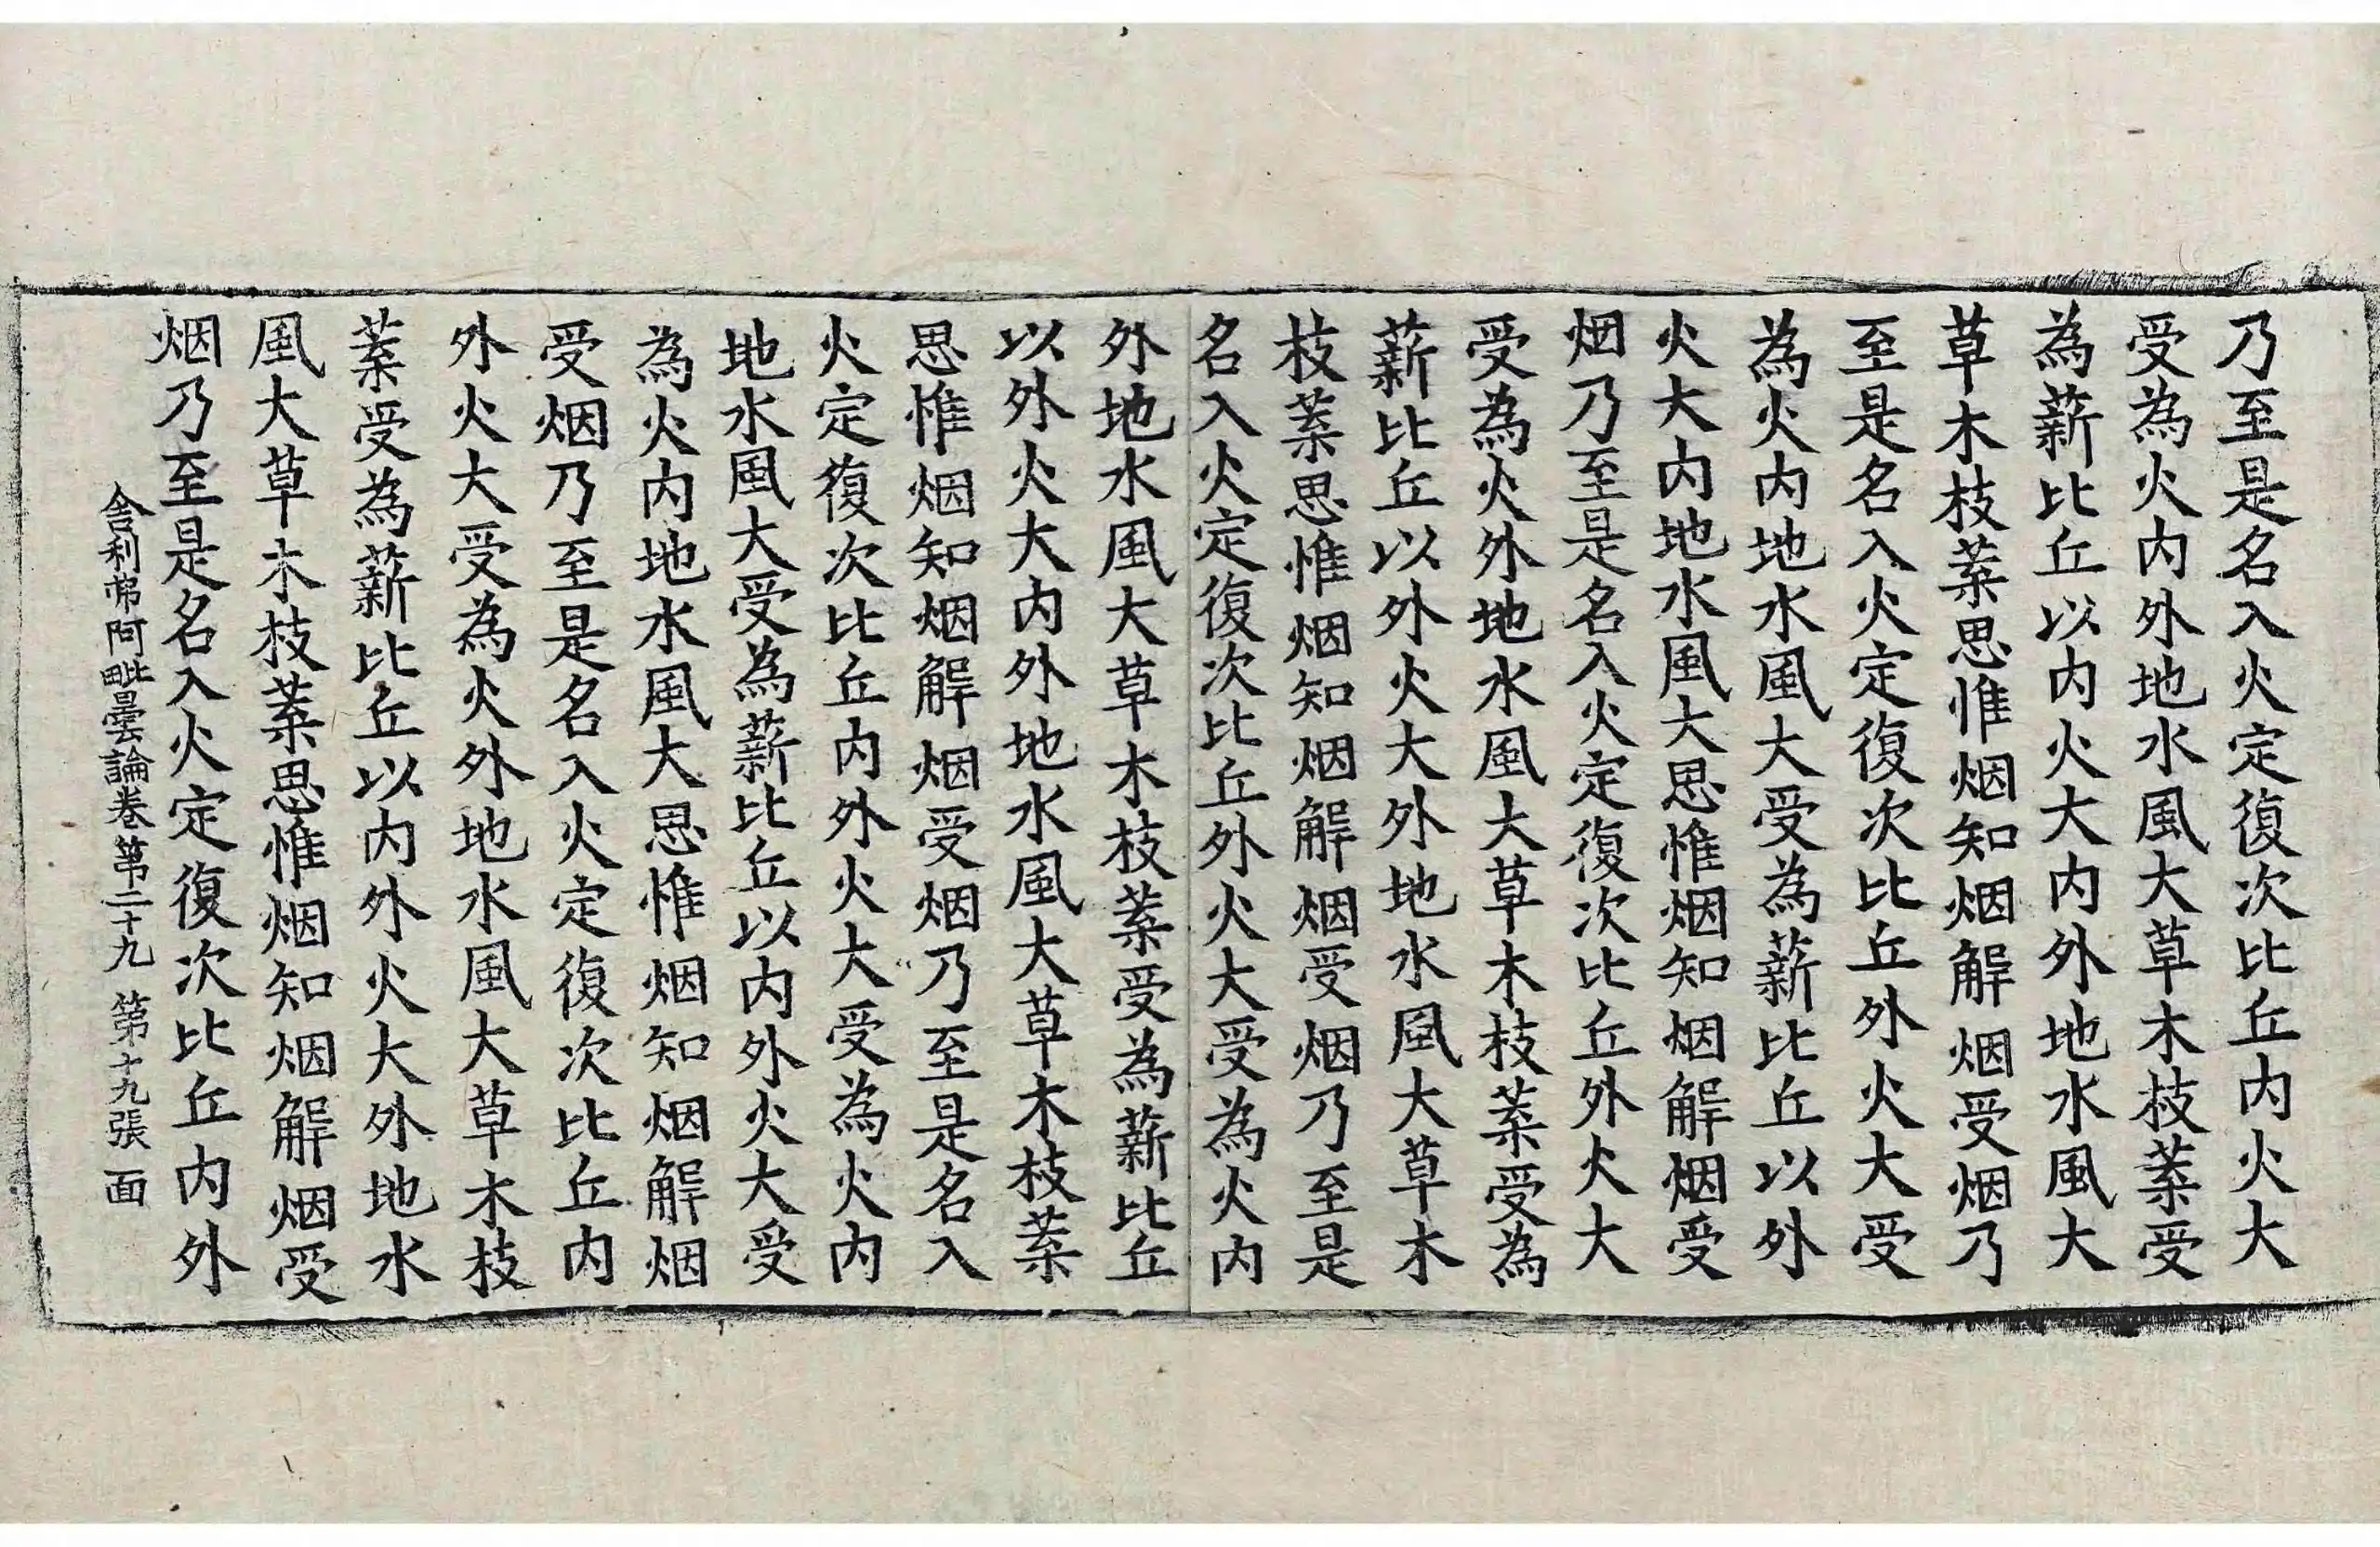 乃至是名入火定復次比丘内火大
受為火内外地水風大草木枝葉受
為薪比丘以内火大内外地水風大
草木枝葉思惟烟知烟解烟受烟乃
至是名入火定復次比丘外火大受
為火内地水風大受為薪比丘以外
火大内地水風大思惟烟知烟解烟受
烟乃至是名入火定復次比丘外火大
受為火外地水風大草木枝葉受為
薪比丘以外火大外地水風大草木
枝葉思惟烟知烟解烟受烟乃至是
名入火定復次比丘外火大受為火内
外地水風大草木枝葉受為薪比丘
以外火大内外地水風大草木枝葉
思惟烟知烟解烟受烟乃至是名入
火定復次比丘内外火大受為火内
地水風大受為薪比丘以内外火大受
為火内地水風大思惟烟知烟解烟
受烟乃至是名入火定復次比丘内
外火大受為火外地水風大草木枝
葉受為薪比丘以内外火大外地水
風大草木枝葉思惟烟知烟解烟受
烟乃至是名入火定復次比丘内外
舍利弗阿毗曇論卷第二十九 第十九張 面